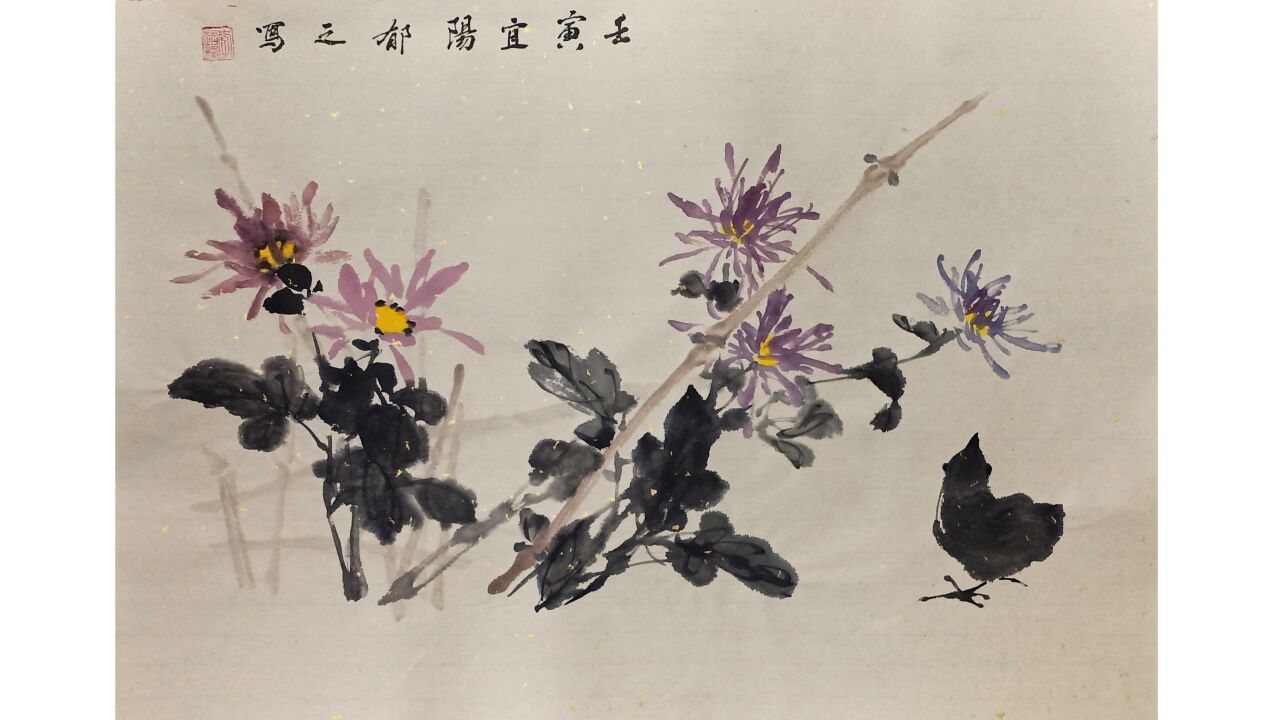 壬寅宜陽郁之寫